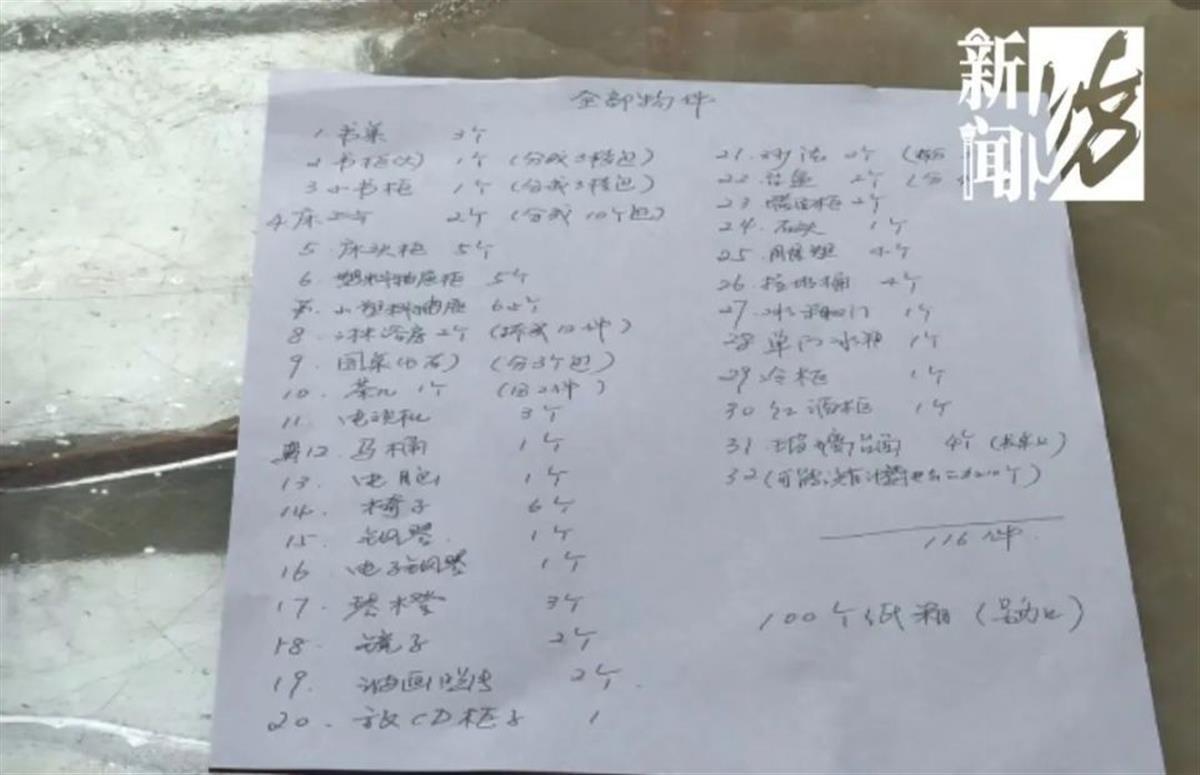 新闻坊
全部物件
1 书桌 3个
2 书柜(大) 1个 (分成3捆包)
3 小书柜 1个 (分成3捆包)
4 床 2个 (分成10个包)
5 床头柜 5个
6 塑料抽屉柜 5个
小塑料抽屉 6个
8 淋浴房 2个 (拆成12件)
9 圆桌(大石) (分3个包)
10. 茶几 1个 (分2件)
11. 电视机 3个
12. 马桶 1个
13. 电脑 1个
14. 椅子 6个
15. 钢琴 1个
16 电子钢琴 1个
17. 琴凳 3个
18. 镜子 2个
19. 油画 2个
20. 放CD柜子 1
21. 沙发 2个
22. 2个 (分
23. 柜 2个
24. 石头 1个
25.
26. 垃圾桶 4个
27. 冰箱 门 1个
28 单门冰箱 1个
29 冷柜 1个
30 红酒柜 1个
31 4个
32 (可能没有计算 个)
116件
100个纸箱 (